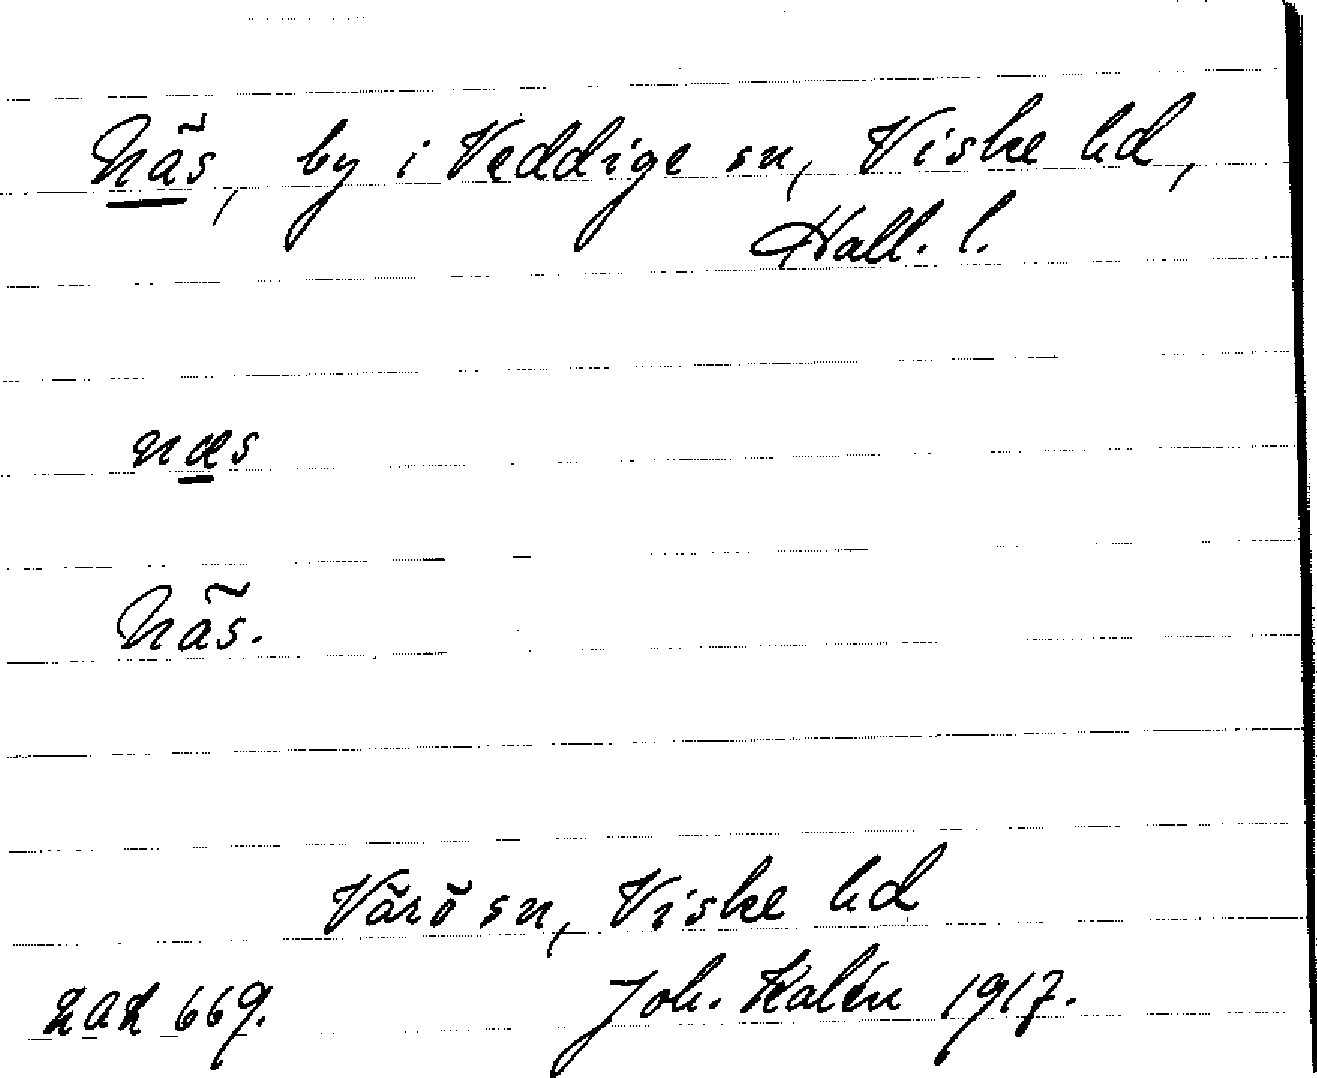 Näs, by i Veddige sn, Viske hd,
Hall. l.
næs
Näs.
Värö sn, Viske hd
669. Joh. Kalén 1917.